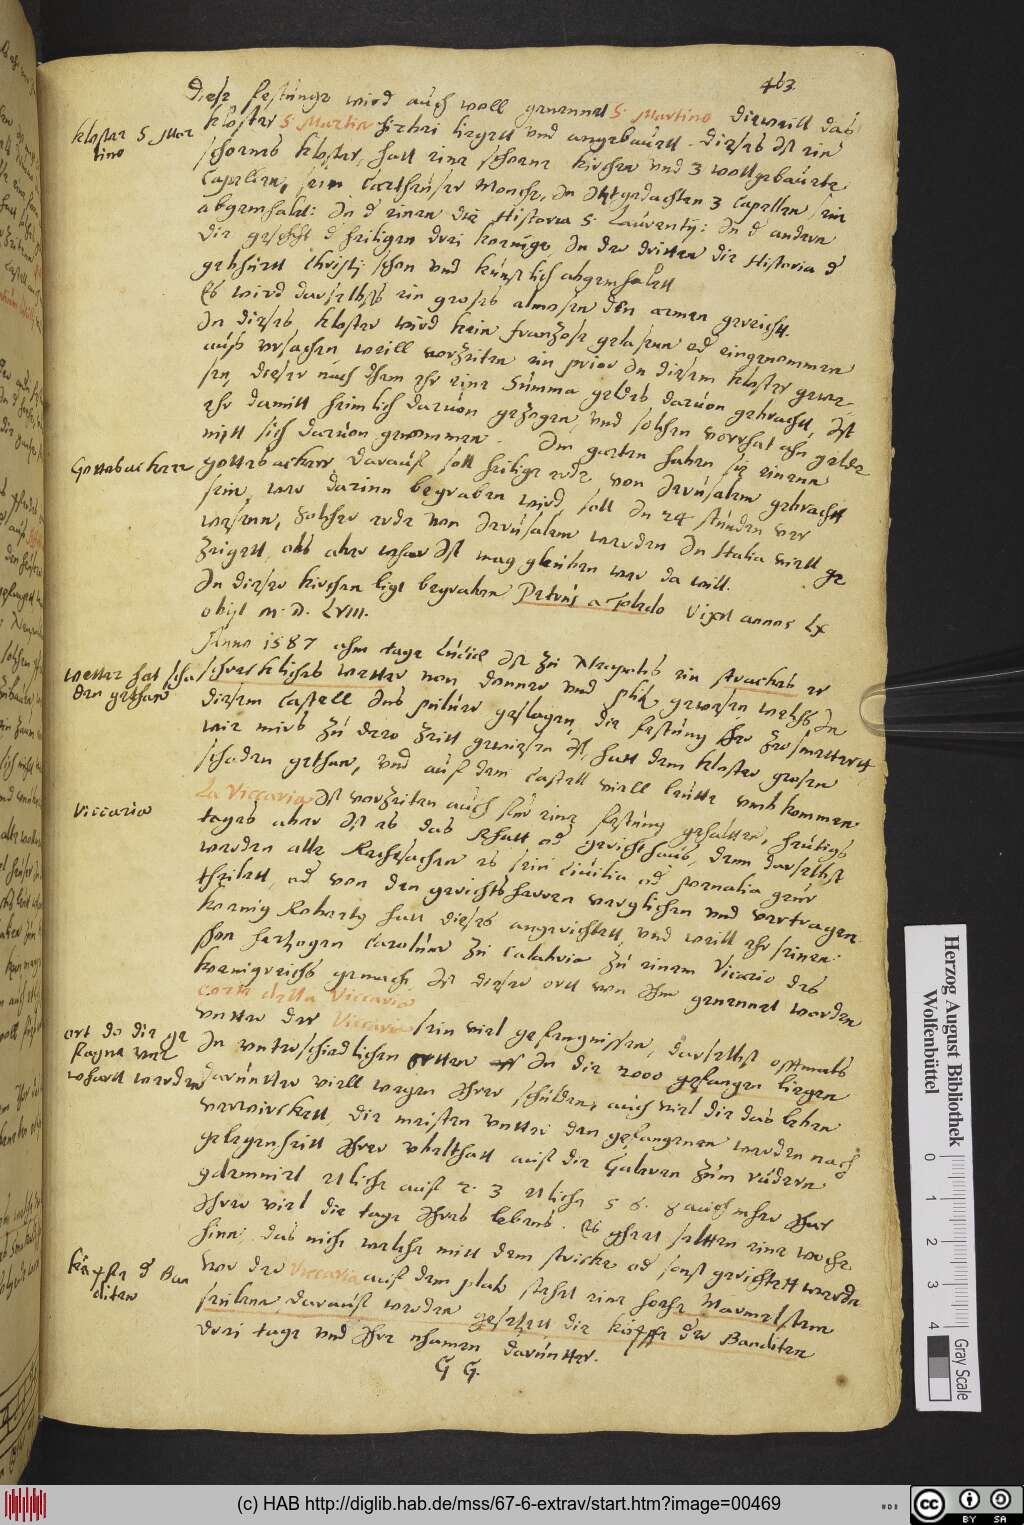 463
Diese festunge wird auch woll genennet S. Martino dieweill das
kloster S. Mar
tino
kloster S. Martin hirbei ligett und angebauett. Dieses ist ein
schoenes kloster, hatt eine schoene kirchen und 3 wollgebauete
Capellen, sein Carthauser Monche, In Itztgedachten 3 Capellen sein
abgemhalet: In d einen die Historia S. Laurentij: In d andern
die geschht d heiligen drei koenige, In der dritten die Historia d
gebhurtt Christj schon und kunstlich abgemhalett
Es wird darselbst ein groses almosen den armen gereicht.
In dieses kloster wird kein franzose gelasenn od eingenommen
auss ursachen weill vorzeiten ein prior In diesem kloster gewe
sen, dieser nach dhem ehr eine Summa geldes daruon gebracht, Ist
ehr damitt heimlich daruon gezogen, und solchen vorrhat ahn gelde
mitt sich daruon genommen. Im garten haben sie einenn
Gottesackere
gottesackere, darauff soll heilige erde von Jerusalem gebracht
sein, wer darinn begraben wird, soll In 24 stunden ver
wesenn, solcher erde von Jerusalem werden In Italia viell ge
zeigett, obs aber whar Ist mag gleuben wer da will.
In dieser kirchen ligt begraben Petrus a Toledo Vixit annos LX
obijt M. D. LVIII.
Anno 1587 ahm tage Luciae Ist zu Neapolis ein starckes er
wetter hat scha
den gethan
schreckliches wetter von donner und plitz gewesen, welchs In
diesem Castell das puluer geslagen, die festung sher zerschmettertt
wie mirs zu dero zeitt gewiesen Ist, hatt dem kloster grosen
schaden gethan, und auff dem Castell viell leutte umbkommen
Viccaria
La Viccaria Ist vorzeiten auch fur eine festung gehalten, heutigs
tages aber Ist es das Rhatt od gericht haus, denn darselbst
werden alle Rechtsachen es sein Ciuilia od poenalia geur
theilett, od von den gerichtsherren verglichen und vertragen
koenig Roberty hatt dieses angerichtett, und weill ehr seinen
shon hertzogen Carolum zu Calabria zu einem Vicario des
koenigreichs gemach, Ist dieser ort von Ihm genennet worden
Corte della Viccaria
ort do die ge
fagne ver
whartt werden
Unter der Viccaria sein viel gefengnissen, darselbst offtmals
In unterschiedlichen ortten In die 2000 gefangen liegen
darunter viell wegen Ihrer schulden, auch viel die das leben
verwircket, die meisten unter den gefangenen werden nach
gelegenheitt Ihrer ubelthatt auff die Galeren zum rudern
gdemmiet etliche auff 2. 3 etliche 5 6. 8 auch mher Jhar
Ihrer viel die tage Ihres lebens. Es gheet selten eine woche
hinn, das nicht welche mitt dem stricke od sonst gerichtett werde
kopffe d Ban
diten
Vor der Viccaria auff dem platz stehet eine hoche Marmelstein
seulenn, darauff werden gesetzet die kopffe der Banditen
drei tage und Ihre nhamen darunter.
G G.
Herzog August Bibliothek
Wolfenbüttel
0 1 2 3 4
Gray Scale
(c) HAB http://diglib.hab.de/mss/67-6-extrav/start.htm?image=00469
cc BY SA